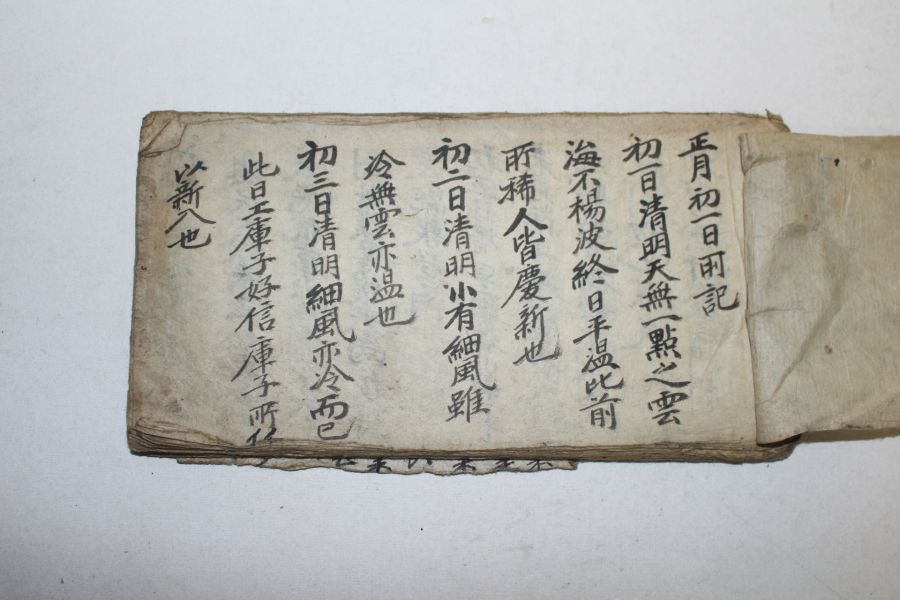 正月初一日所記
初一日清明天無一點之雲
海不楊波終日平温比前
所稀人皆慶新也
初二日清明小有細風雖
冷無雲亦温也
初三日清明細風亦冷而已
此日工庫子好信庫子所
以新入也